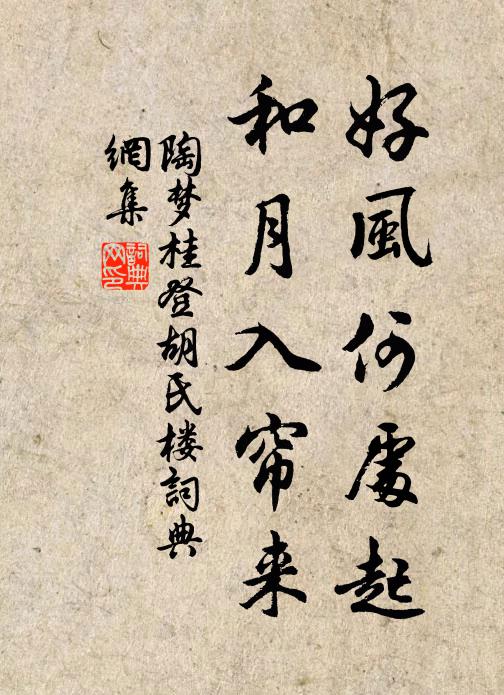 好風何處起
和月入帘来
陶梦桂登胡氏楼詞典
網集
詞典
网印